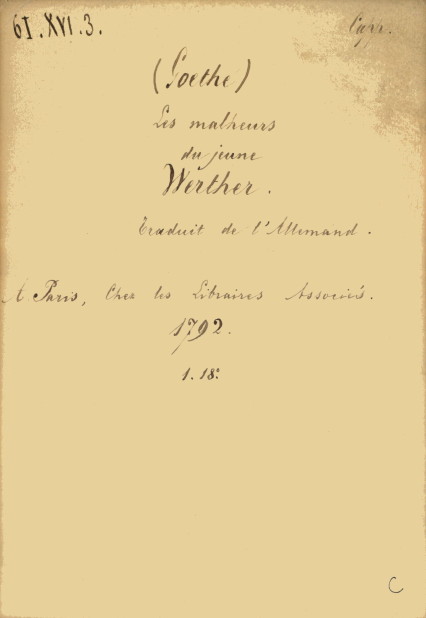 61.XVI.3.
(Goethe)
Les malheurs
du jeune
Werther.
Traduit de l'Allemand.
A Paris, Chez les Libraires Associés.
1792.
1. 18°
C